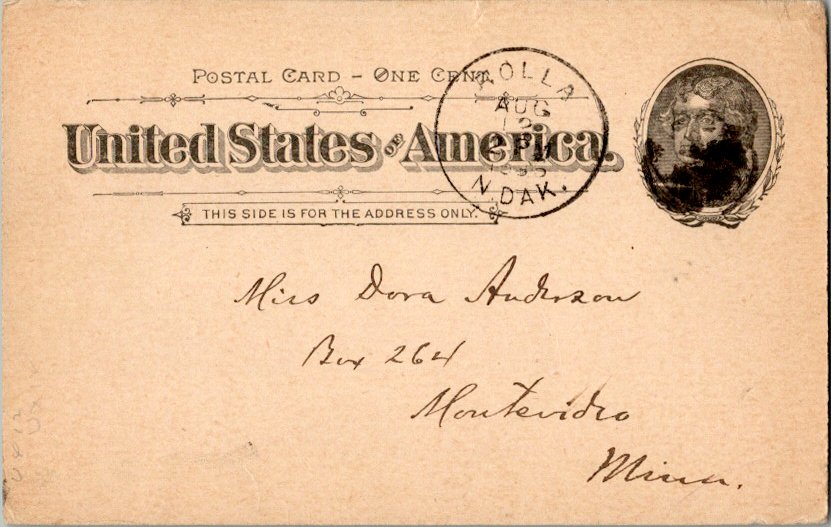 POSTAL CARD – ONE CENT.
United States OF America.
THIS SIDE IS FOR THE ADDRESS ONLY.
ROLLA
AUG
12
2 PM
N. DAK.
Miss Dora Anderson
Box 264
Montevideo
Minn.